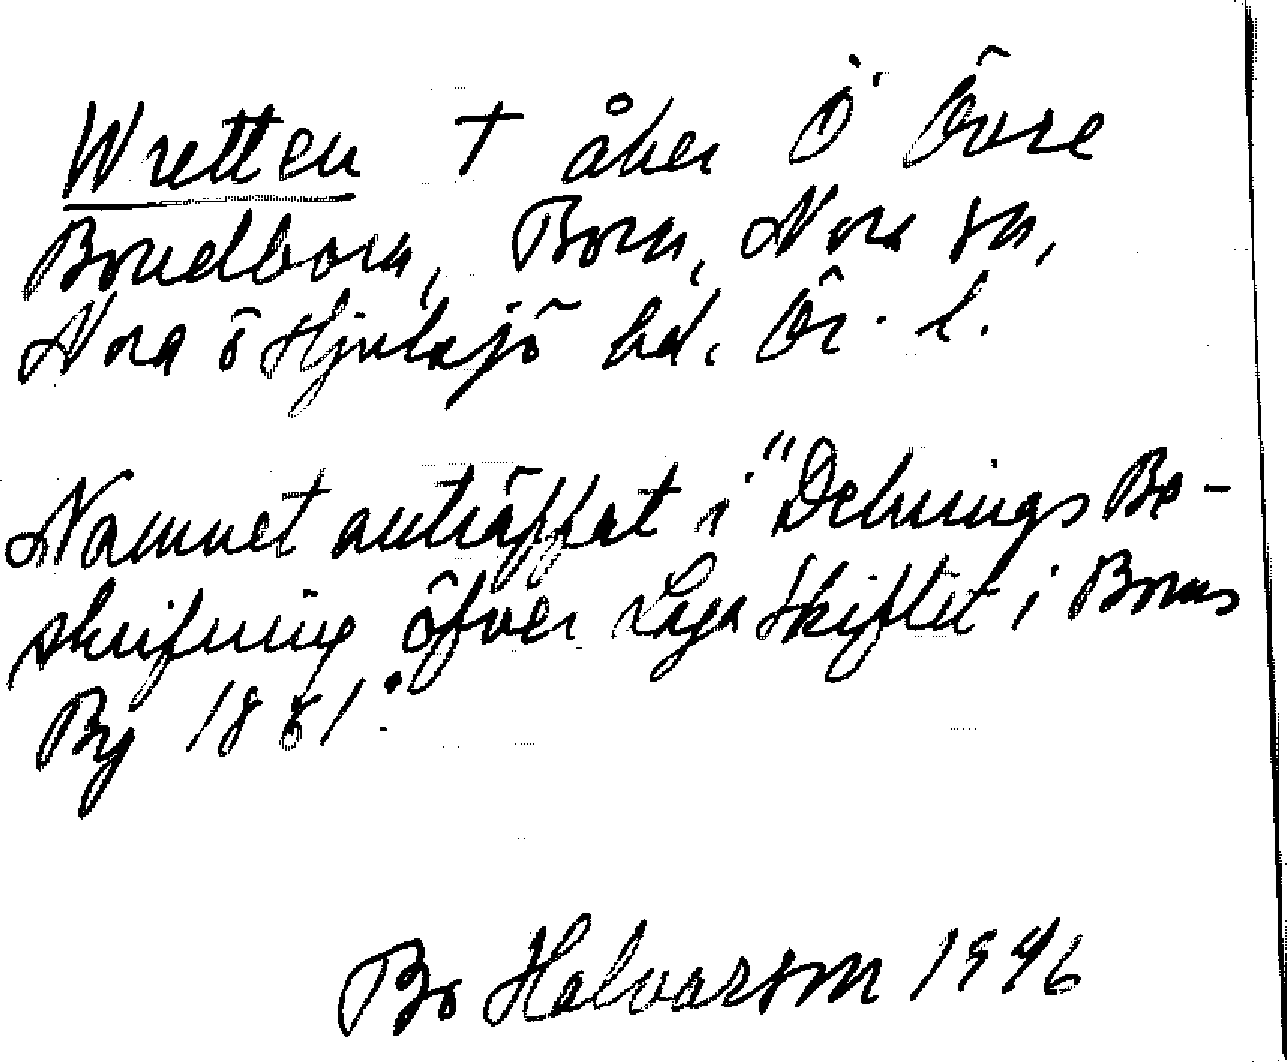 Wretten † åker Ö Övre
Bondborn, Born, Nora sn,
Nora o Hjulsjö hd. Ör. l.
Namnet anträffat i "Delnings Be-
skrifning öfver Laga Skiftet i Borns
By 1861".
Bo Halvarson 1946